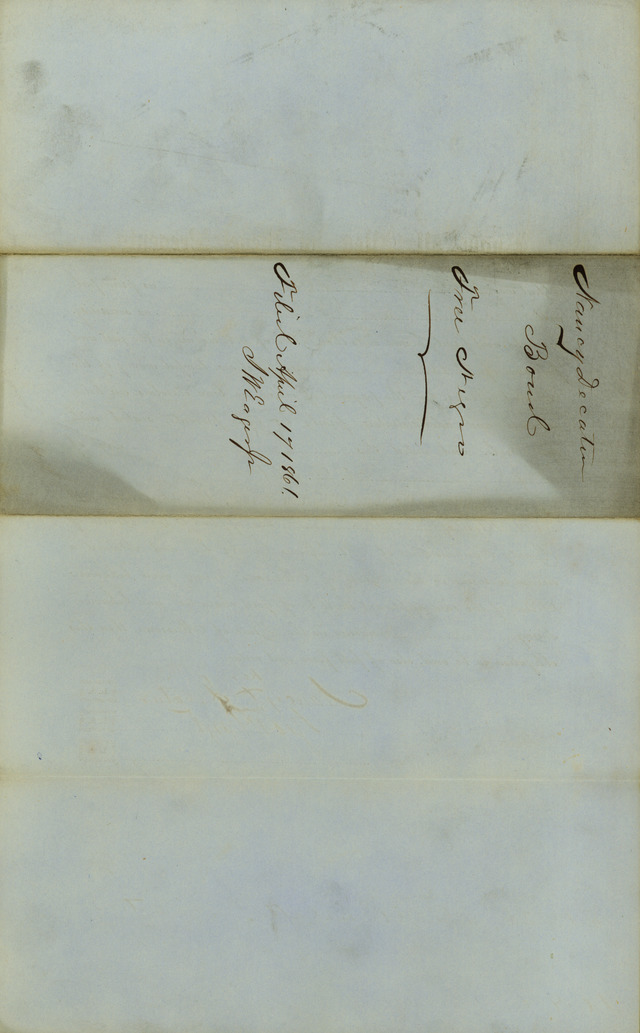 Nancy Decatur
Bond
Free Negro
Filed April 17 1861.